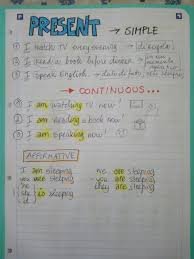 PRESENT → SIMPLE
① I watch TV every evening →
② I read a book before dinner →
③ I speak English →
→ CONTINUOUS...
① I am watching TV now!
② I am reading a book now!
③ I am speaking now!
AFFIRMATIVE
I am sleeping
you are sleeping
he
she is sleeping
it
we are sleeping
you are sleeping
they are sleeping